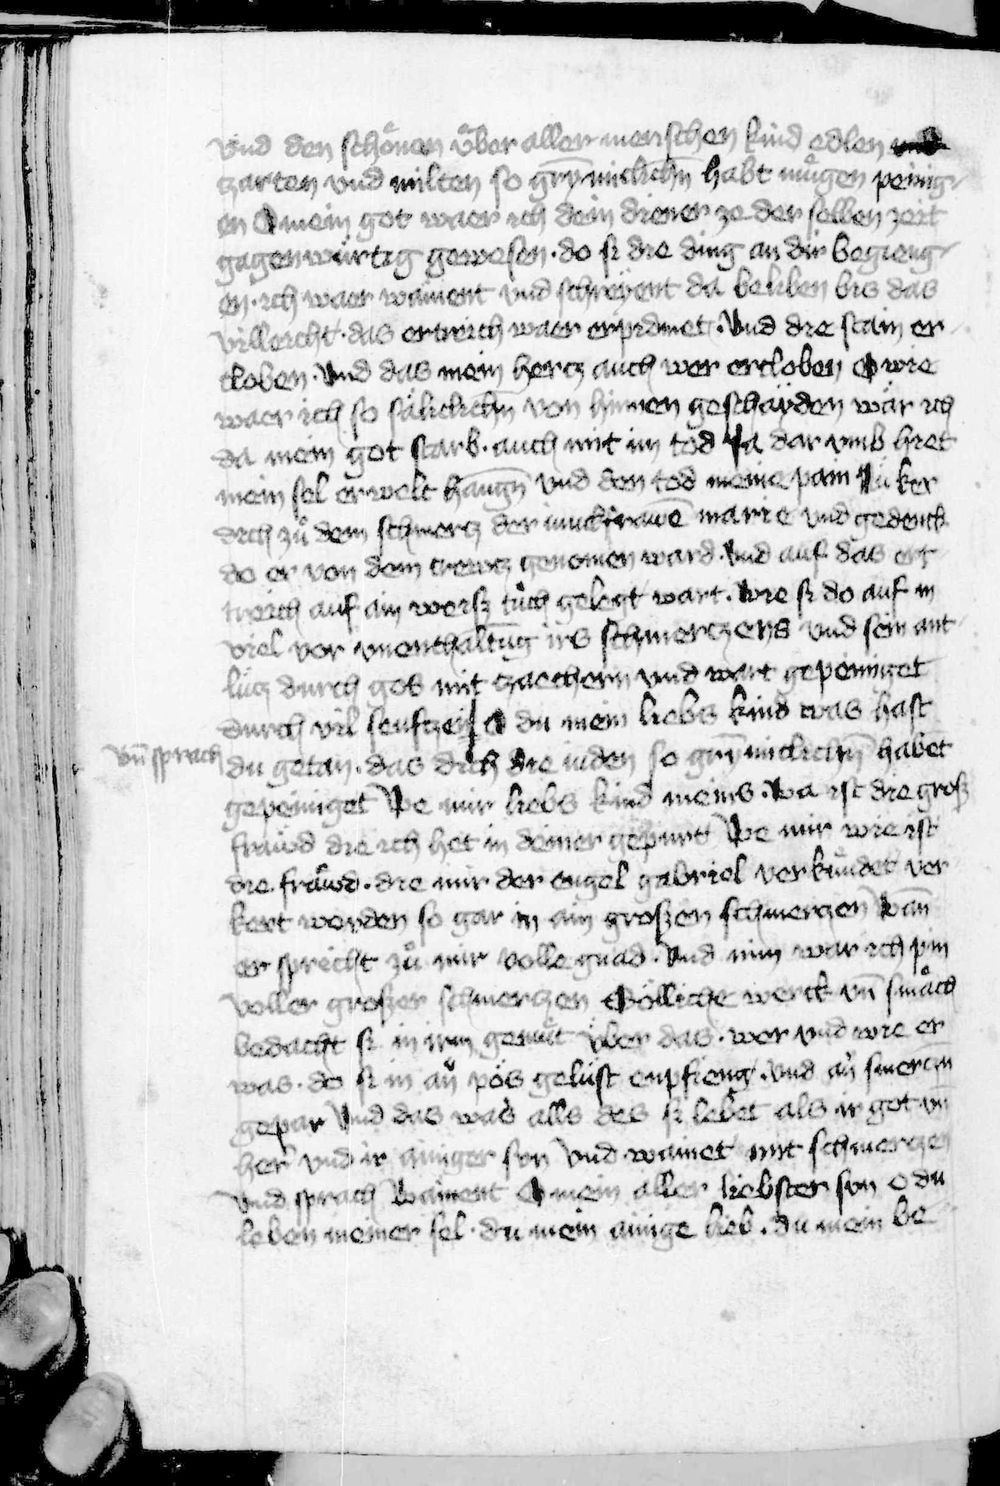 Vnd den schoͤnen uͤber aller menschen kind edlen
tzarten vnd milten so grȳmiclichn̄ habt muͤgen peinig
en O mein got waer ich dein diener ze der selben zeit
gagenwürtig gewesen · do si die ding an dir begieng
en · ich waer wainent vnd schreyent da beliben bis das
villeicht · das ertreich waer erpidmet · Vnd die stain er
cloben · Vnd das mein hertz auch wer ercloben O wie
waer ich so säliclichn̄ von hinnen geschayden wär ich
da mein got starb · auch mit im tod Ja dar vmb hiet
mein sel erwelt haūgn̄ vnd den tod meine pain Nu ker
dich zuͦ dem schmertz der iunckfrawē marie vnd gedenck
do er von dem crewtz genomen ward · Vnd auf das ert
treich auf ain weisz tuͦch gelegt wart · wie si do auf in
viel vor vnenthaltūg irs schmertzens vnd sein ant
lütz durch gos mit tzaechern vnd wart gepeiniget
durch vil seuftzen O du mein liebs kind was hast
vn̄ sprach
du getan · das dich die iuden so grȳmiclichn̄ habet
gepeiniget We mir liebs kind meins · wa ist die grosz
fräwd die ich het in deiner gepurt We mir wie ist
die fräwd · die mir der engel gabriel verkuͤndet ver
kert worden so gar in ain groszen schmertzen Wan̄
er spricht zuͦ mir volle gnad · Vnd nun war ich pin
voller groszer schmertzen Söllliche werck vn̄ smäch
bedacht si in irm gemuͤt über das · wer vnd wie er
was · do si in an̄ pös gelüst enpfieng · vnd an̄ smertzn̄
gepar Vnd das was alls des si lebet als ir got vn̄
her vnd ir ainiger sun Vnd wainet mit schmertzen
vnd sprach wainent O mein aller liebster sun o du
leben meiner sel · du mein ainige lieb · du mein be